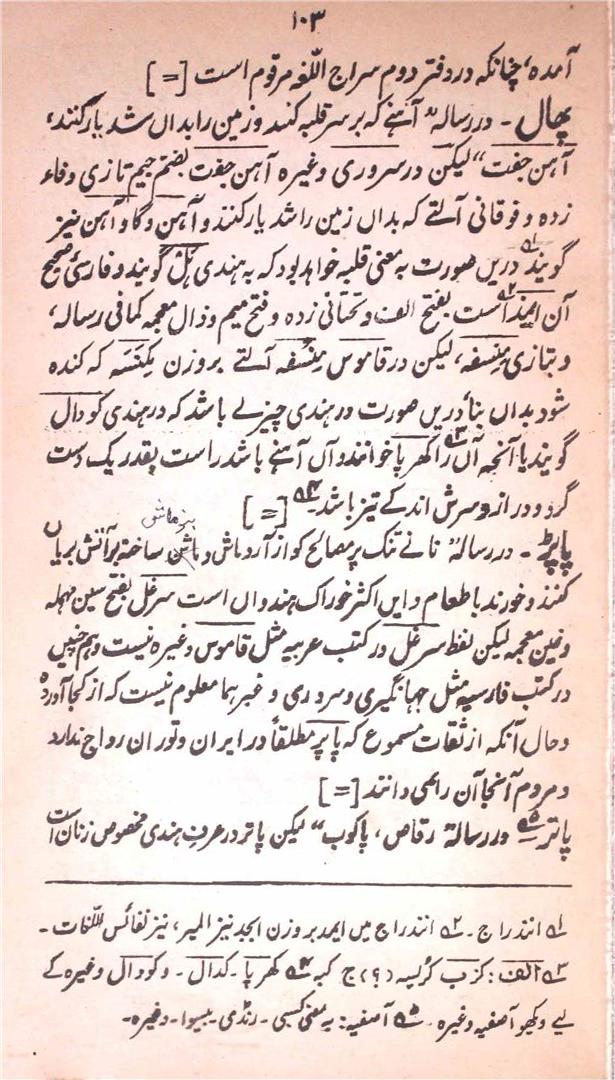 ۱۰۳
آمدہ، چنانکہ در دفتر دوم سراج اللغہ مرقوم است [=]
پھال - در رسالہ "آہنے کہ بر سر قلبہ کنند و زمین را بداں شد یار کنند،
آہن جفت" لیکن در سروری وغیرہ آہن جفت بضم جیم تازی و فاء
زدہ و فوقانی آلتے کہ بداں زمین را شد یار کنند و آہن و گاو آہن نیز
گویند ؎۱ دریں صورت بہ معنی قلبہ خواہد بود کہ بہ ہندی ہَل گویند و فارسی صحیح
آن ایمذ ؎۲ است بفتح الف و تحتانی زدہ و فتح میم و ذال معجمہ کما فی رسالہ،
و بتازی مِنسفہ، لیکن در قاموس مِنْسَفہ آلتے بروزن مِکنَسَہ کہ کندہ
شود بداں بنا، دریں صورت در ہندی چیزے باشد کہ در ہندی کودال
گویند یا آنچہ آں را کھرپا ؎۳ خوانند و آں آہنے باشد راست بقدر یک دست
گرد و دراز و سرش اندکے تیز باشد ؎۴ [=]
پاپڑ - در رسالہ "نانے تنک پر مصالح کہ از آرد ماش و ساختہ بر آتش بریاں
کنند و خورند با طعام و ایں اکثر خوراک ہندواں است سرغل بفتح سین مہملہ
و غین معجمہ لیکن لفظ سرغل در کتب عربیہ مثل قاموس وغیرہ نیست و ہم چنیں
در کتب فارسیہ مثل جہانگیری و سروری و غیر ہما معلوم نیست کہ از کجا آوردہ
و حال آنکہ از ثقات مسموع کہ پاپر مطلقاً در ایران و توران رواج ندارد
و مردم آنجا آن را نمی دانند [=]
پاتر ؎۵ در رسالۂ رقاص، پاکوب" لیکن پاتر در عرف ہندی مخصوص زنان است
؎۱ انند راج - ؎۲ انند راج میں ایمد بروزن ابجد نیز المیر، نیز نفائس اللغات -
؎۳ الف: کزب کرلبہ (؟) ج کبہ ؎۴ کھرپا - کدال - و کودال وغیرہ کے
لیے دیکھو آصفیہ وغیرہ - ؎۵ آصفیہ: بہ معنی کسبی - رنڈی - بیسوا - وغیرہ -